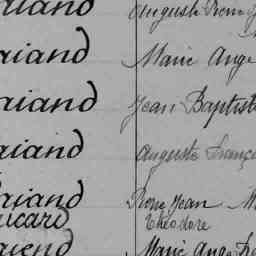 aiand Auguste Pierre
aiand Marie Ange
aiand Jean Baptiste
aiand Auguste Franço
aiand Pierre Jean M
icard Théodore
aiend Marie Ange Fr